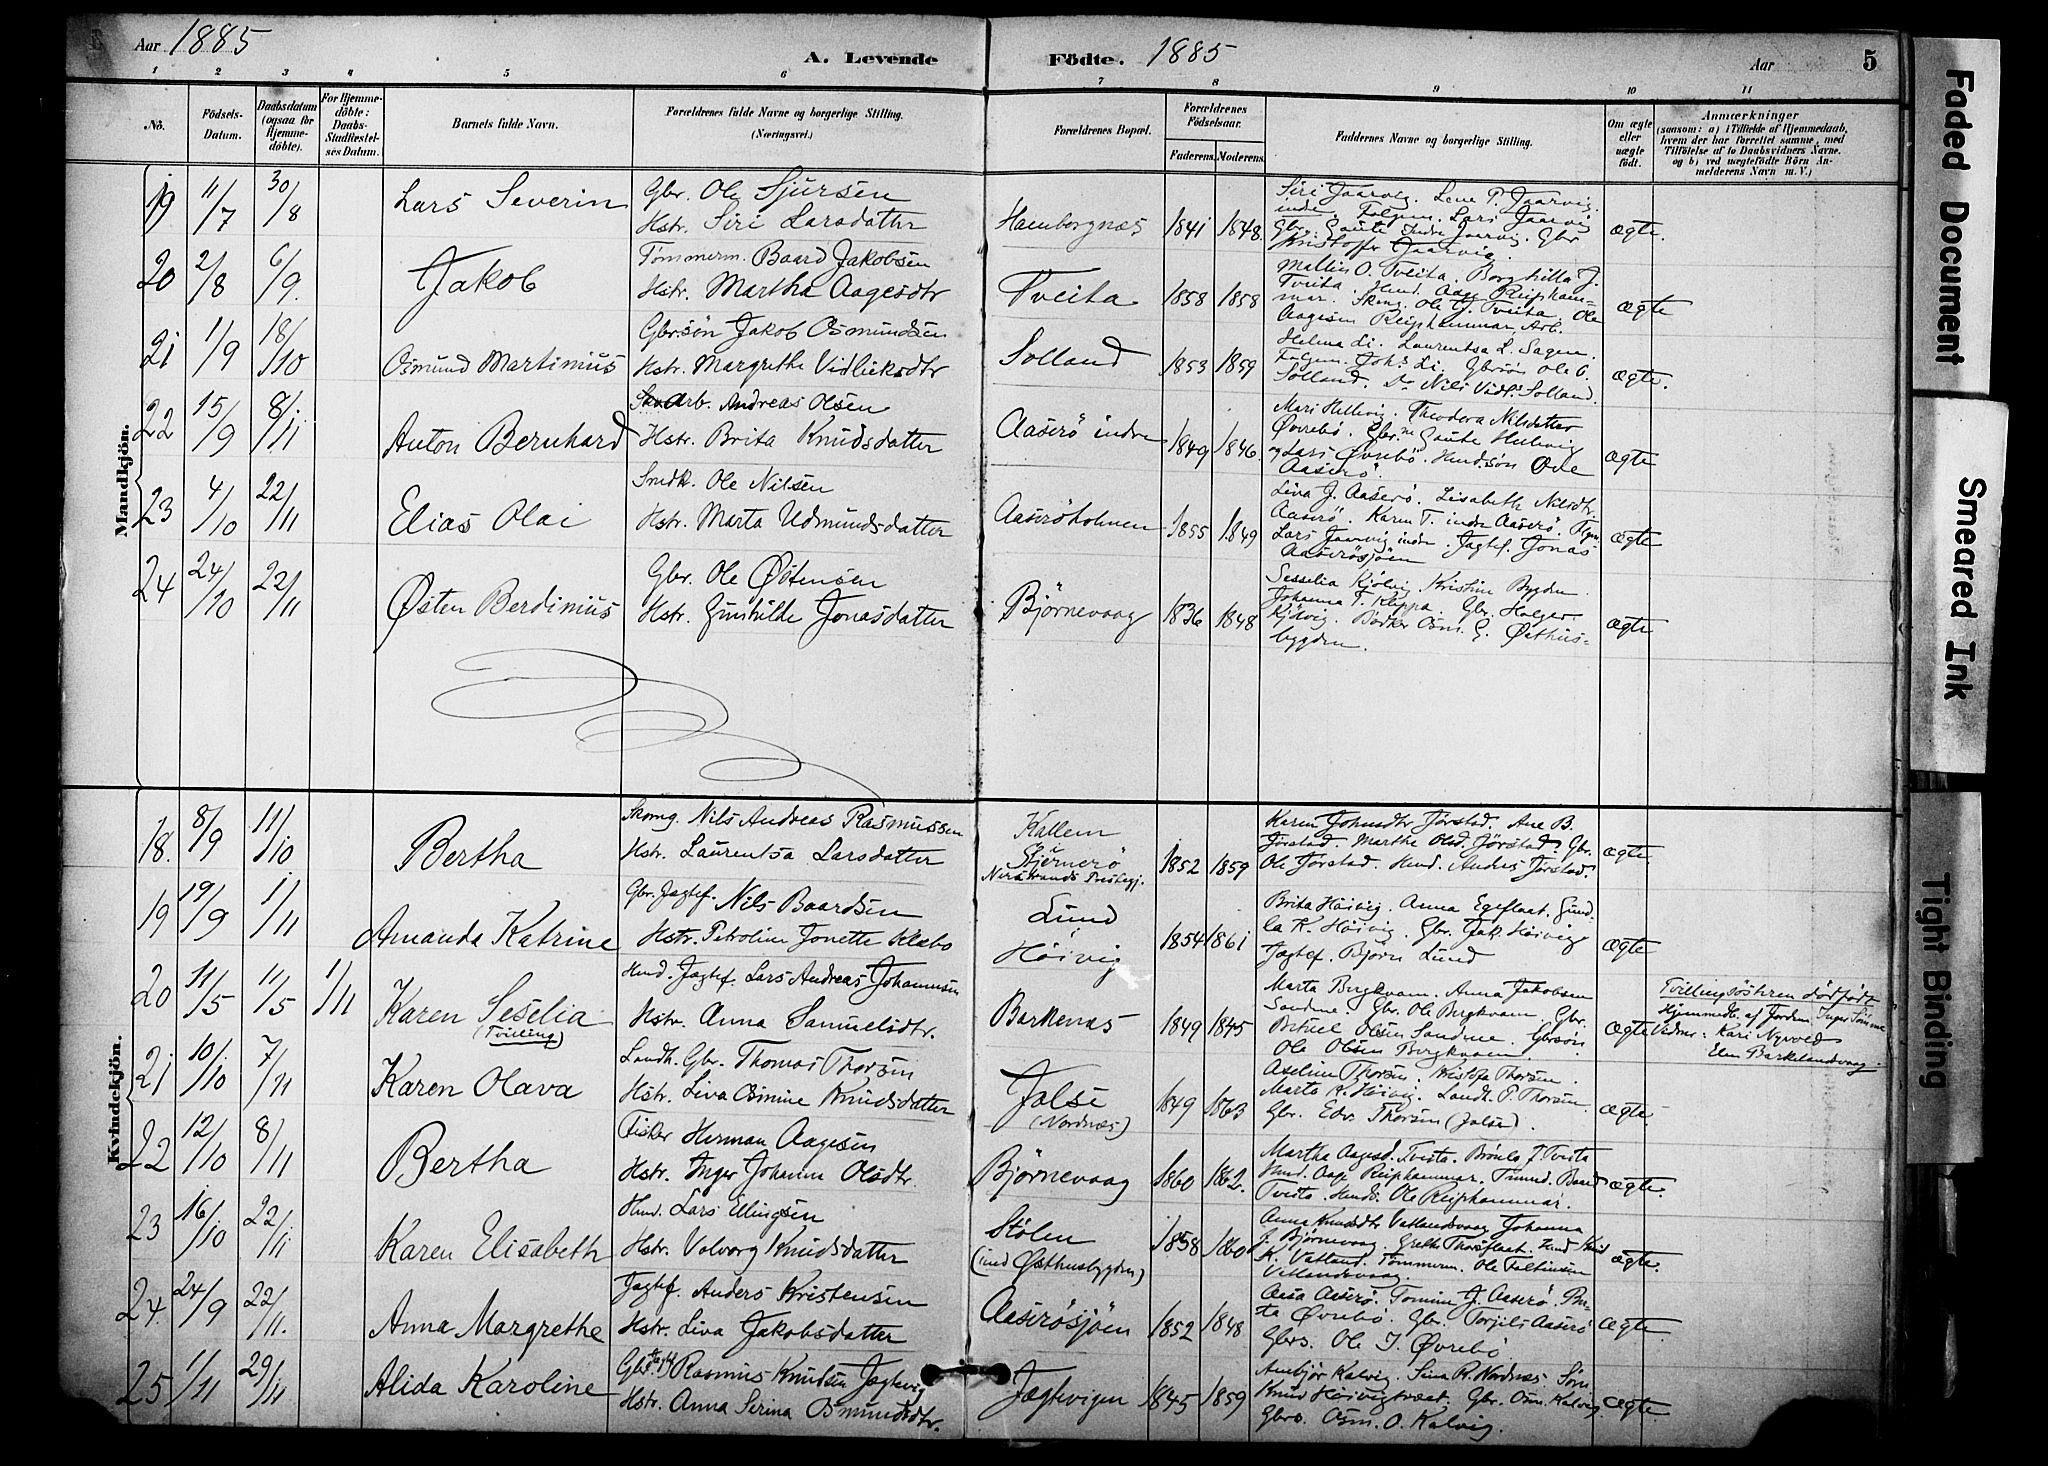 Aar 1885 A. Levende Födte. 1885 Aar 5
1 2 3 4 5 6 7 8 9 10 11
No. Födsels-Datum. Daabsdatum (ogsaa for Hjemme-döbte). For Hjemme-döbte: Daabs-Stadfæstel-ses Datum. Barnets fulde Navn. Forældrenes fulde Navne og borgerlige Stilling. (Næringsvei.) Forældrenes Bopæl. Forældrenes Födselsaar. Faderens. Moderens. Faddernes Navne og borgerlige Stilling. Om ægte eller uægte født. Anmærkninger (saasom: a) i Tilfælde af Hjemmedaab, hvem der har forrettet samme, med Tilföielse af to Daabsvidners Navne. og b) ved uægtefödte Börn Anmelderens Navn m. V.)
Mandkjön.
19 11/7 30/8 Lars Severin Gbr. Ole Sjursen
Hstr. Siri Larsdatter Hamborgnæs 1841 1848. ægte.
Siri Jaarvig. Lene P. Jaarvig
indre. Folgem. Lars Jaarvig
Gbr. Gaute Indre Jaarvig. Gbr
Kristoffer Jaarvig.
20 2/8 6/9. Jakob Tømmerm. Baard Jakobsen
Hstr. Martha Aagesdtr Tveita 1858 1858 ægte
Mallin O. Tveita. Borghilla J.
Tveita. Hmd. Aage Reiphammar.
Skomg. Ole J. Tveita. Ole
Aagesen Reiphammar Arb.
21 1/9 18/10 Osmund Martinius Gbrsøn Jakob Osmundsen
Hstr. Margrethe Vidliksdtr Solland 1853 1859 ægte.
Helena Li. Laurentsa L. Sagen.
Folgem. Johs Li. Gbrsøn Ole O.
Solland. Do Nils Vidl. Solland.
22 15/9 8/11 Anton Bernhard Arb. Andreas Olsen
Hstr. Brita Knudsdatter Aaserö indre 1849 1846. ægte
Mari Hellvig. Theodora Nilsdatter
Øvrebö. Gbrne Gaute Hellvig
og Lars Øvrebö. Hmdsön Ole
Aaserö
23 4/10 22/11 Elias Olai Smdk. Ole Nilsen
Hstr. Marta Udmundsdatter Aaseröholmen 1855 1849 ægte
Liva J. Aaserö. Lisabeth Nilsdtr.
Aaserö. Karen T. indre Aaserö. Flgm.
Lars Jaarvig indre. Jagtef. Jonas
Aaserösjöen
24 24/10 22/11 Østen Berdinius Gbr. Ole Østensen
Hstr. Gunhilde Jonasdatter Björnevaag 1836 1848 ægte
Sesselia Kjölvig. Kristine Bygden.
Johanna T. Kleppa. Gbr. Holger
Kjölvig. Bødker Osm. G. Østhus-
bygden.
Kvindekjön.
18. 8/9 11/10 Bertha Skomg. Nils Andreas Rasmussen
Hstr. Laurentsa Larsdatter Kallem
i Stjernerö
Nærstrands Præstegj. 1852 1859 ægte.
Karen Johnsdtr Jørstad. Ane B.
Jørstad. Marthe Olsd. Jørstad. Gbr.
Ole Jørstad. Hmd. Anders Jørstad.
19 19/9 1/11 Amanda Katrine Gbr. Jagtef. Nils Baardsen
Hstr. Petroline Jonette Klæbo Lund
Höivig 1854 1861 ægte
Brita Höivig. Anna Egeflaat. Gund-
la K. Höivig. Gbr. Jak. Höivig
Jagtef. Björn Lund
20 11/5 11/5 1/11 Karen Seselia
(Tvilling) Hmd. Jagtef. Lars Andreas Johannesen
Hstr. Anna Samuelsdtr. Barkenæs 1849 1845 ægte
Marta Bergkvam. Anna Jakobsen
Sandene. Gbr. Ole Bergkvam. Gbr.
Betuel Olsen Sandene. Gbrsön
Ole Olsen Bergkvam.
Tvillingsöstren dödfödt
Hjemmedb. af Jordem. Inger
Vidner: Kari Nyvold
Elen Barkelandsvaag.
21 10/10 7/11 Karen Olava Landh. Gbr. Thomas Thorsen
Hstr. Liva Osmine Knudsdatter Jelse
(Nordnæs) 1849 1863 ægte.
Aseline Thorsen. Kristofa Thorsen.
Marta K. Höivig. Landh. P. Thorsen.
Gbr. Edv. Thorsen (Jelse).
22 12/10 8/11 Bertha Fisker Herman Aagesen
Hstr. Inger Johanne Olsdtr. Björnevaag 1860 1862. ægte.
Martha Aagesd. Tveita. Brönla J. Tveita
Hmd. Aage Reiphammar. Tmmd. Baard
Tveita. Hmds. Ole Reiphammar.
23 16/10 22/11 Karen Elisabeth Hmd. Lars Ellingsen
Hstr. Volvorg Knudsdatter Stölen
(ind Østhusbygden) 1858 1860 ægte.
Anna Knudsdtr Vatlandsvaag Johanna
J. Björnevaag. Grethe Thorsflaat. Hmd Knud
K. Vatland. Tömmerm. Ole
Vatlandsvaag.
24. 24/9 22/11. Anna Margrethe Jagtef. Anders Kristensen
Hstr. Liva Jakobsdatter Aaserösjöen 1852 1848 ægte.
Aasa Aaserö. Tomine J. Aaserö. Bri-
ta Øvrebö. Gbr. Torjils Aaserö
Gbrs. Ole J. Øvrebö
25 1/11 29/11 Alida Karoline Gbr. Rasmus Knudsen Jagtevig
Hstr. Anna Serina Osmundsdtr. Jægtevigen 1845 1859 ægte
Anbjör Kalvig. Sina R. Nordnæs. Søn
Knud Höivigtræet. Gbr. Osm. Kalvig
Gbrs. Osm. O. Kalvig.
Faded Document
Smeared Ink
Tight Binding